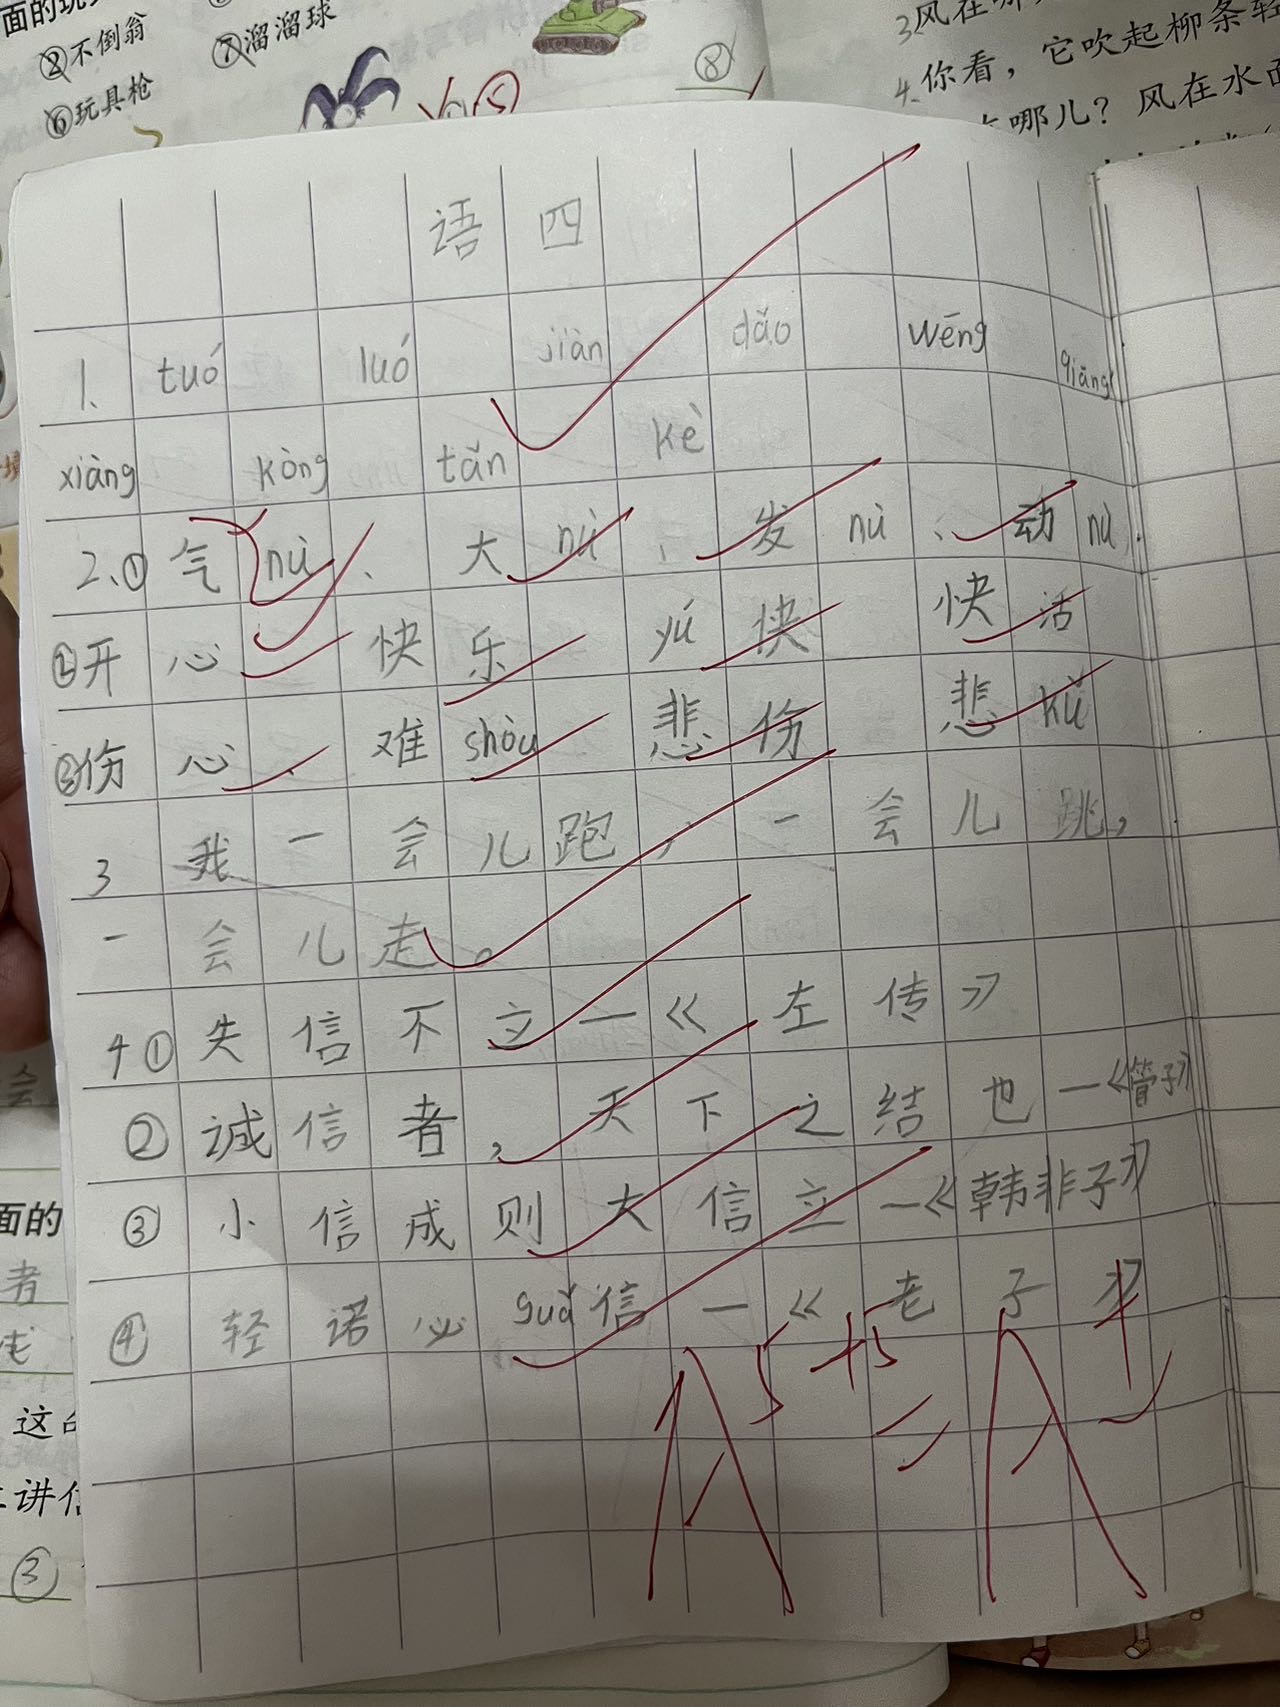 面的玩
②不倒翁 ⑦溜溜球
⑥玩具枪
⑧
⑤
3.风在哪
4.你看，它吹起柳条轻
哪儿？风在水面
语四
1、tuó luó jiàn dǎo wēng qiāng
xiàng kòng tǎn kè
2、①气nù、大nù、发nù、动nù.
②开心 快乐 yú快 快活
③伤心、难shòu 悲伤 悲kǔ
3 我一会儿跑，一会儿跳，
一会儿走。
4①失信不立—《左传》
②诚信者，天下之结也—《管子》
③小信成则大信立—《韩非子》
④轻诺必guǎ信—《老子》
A 5+5 = A+
面的
者
这
讲信
③